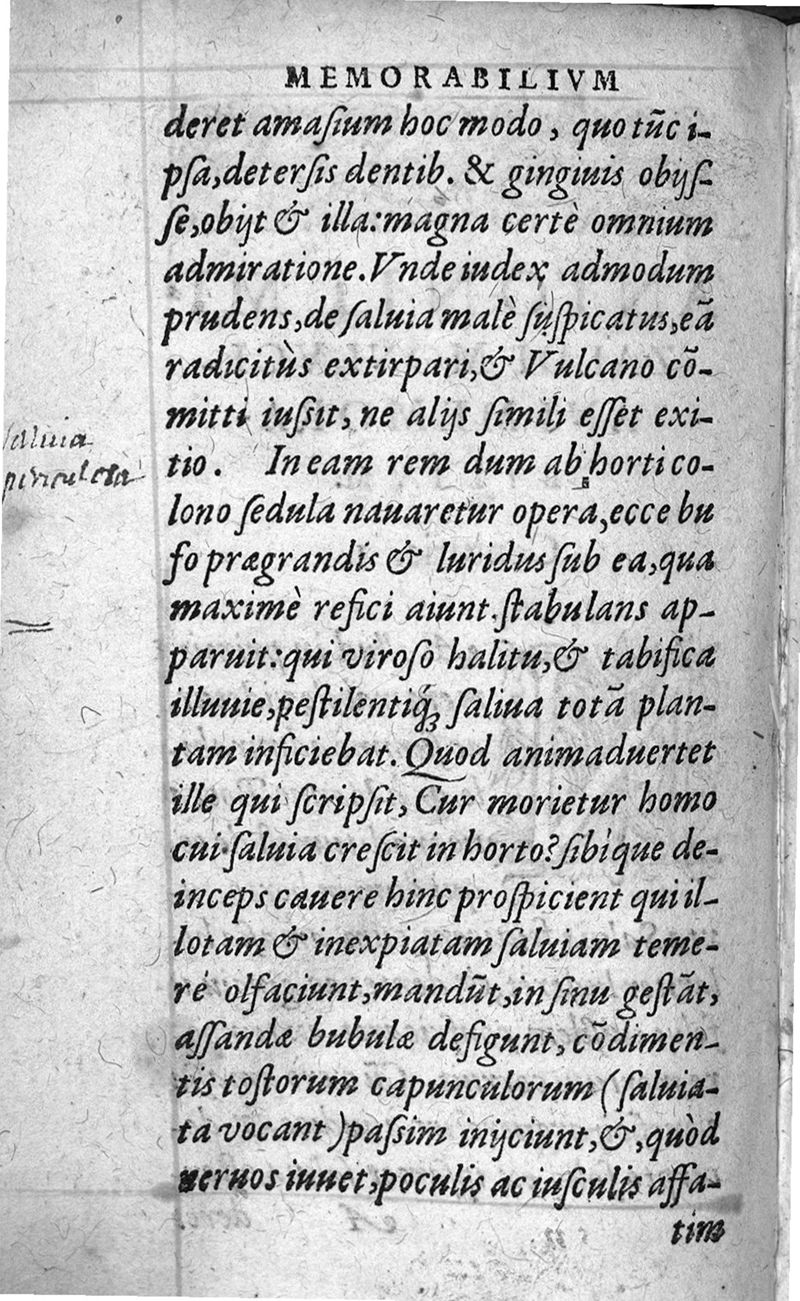 MEMORABILIVM
deret amaſium hoc modo, quo tūc i-
pſa, deterſis dentib. & gingiuis obijſ-
ſe, obijt & illa: magna certè omnium
admiratione. Vnde iudex admodum
prudens, de ſaluia malè ſuſpicatus, eā
radicitùs extirpari, & Vulcano cō-
mitti iuſsit, ne alijs ſimili eſſet exi-
tio. In eam rem dum ab horti co-
lono ſedula nauaretur opera, ecce bu
fo prægrandis & luridus ſub ea, qua
maximè refici aiunt. ſtabulans ap-
paruit: qui viroſo halitu, & tabifica
illuuie, peſtilentiq́ꝫ ſaliua totā plan-
tam inficiebat. Quod animaduertet
ille qui ſcripſit, Cur morietur homo
cui ſaluia creſcit in horto? ſibi que de-
inceps cauere hinc proſpicient qui il-
lotam & inexpiatam ſaluiam teme-
re olfaciunt, mandūt, in ſinu geſtāt,
aſſandæ bubulæ defigunt, cōdimen-
tis toſtorum capunculorum (ſaluia-
ta vocant) paſsim inijciunt, &, quòd
neruos iuuet, poculis ac iuſculis affa-
tim
ſaluia
periculoſa